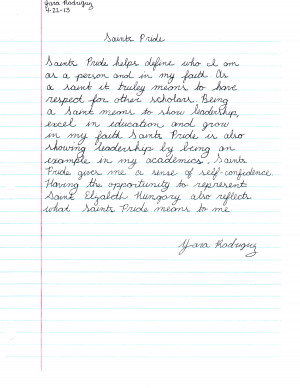 Yara Rodriguez
4-22-13
Saints Pride
Saints Pride helps define who I am
as a person and in my faith As
a saint it truley means to have
respect for other scholars. Being
a saint means to show leadership,
excel in education and grow
in my faith Saints Pride is also
showing leadership by being an
example in my academics. Saints
Pride gives me a sense of self-confidence.
Having the opportunity to represent
Saint Elizabeth Hungary also reflects
what Saints Pride means to me
Yara Rodriguez